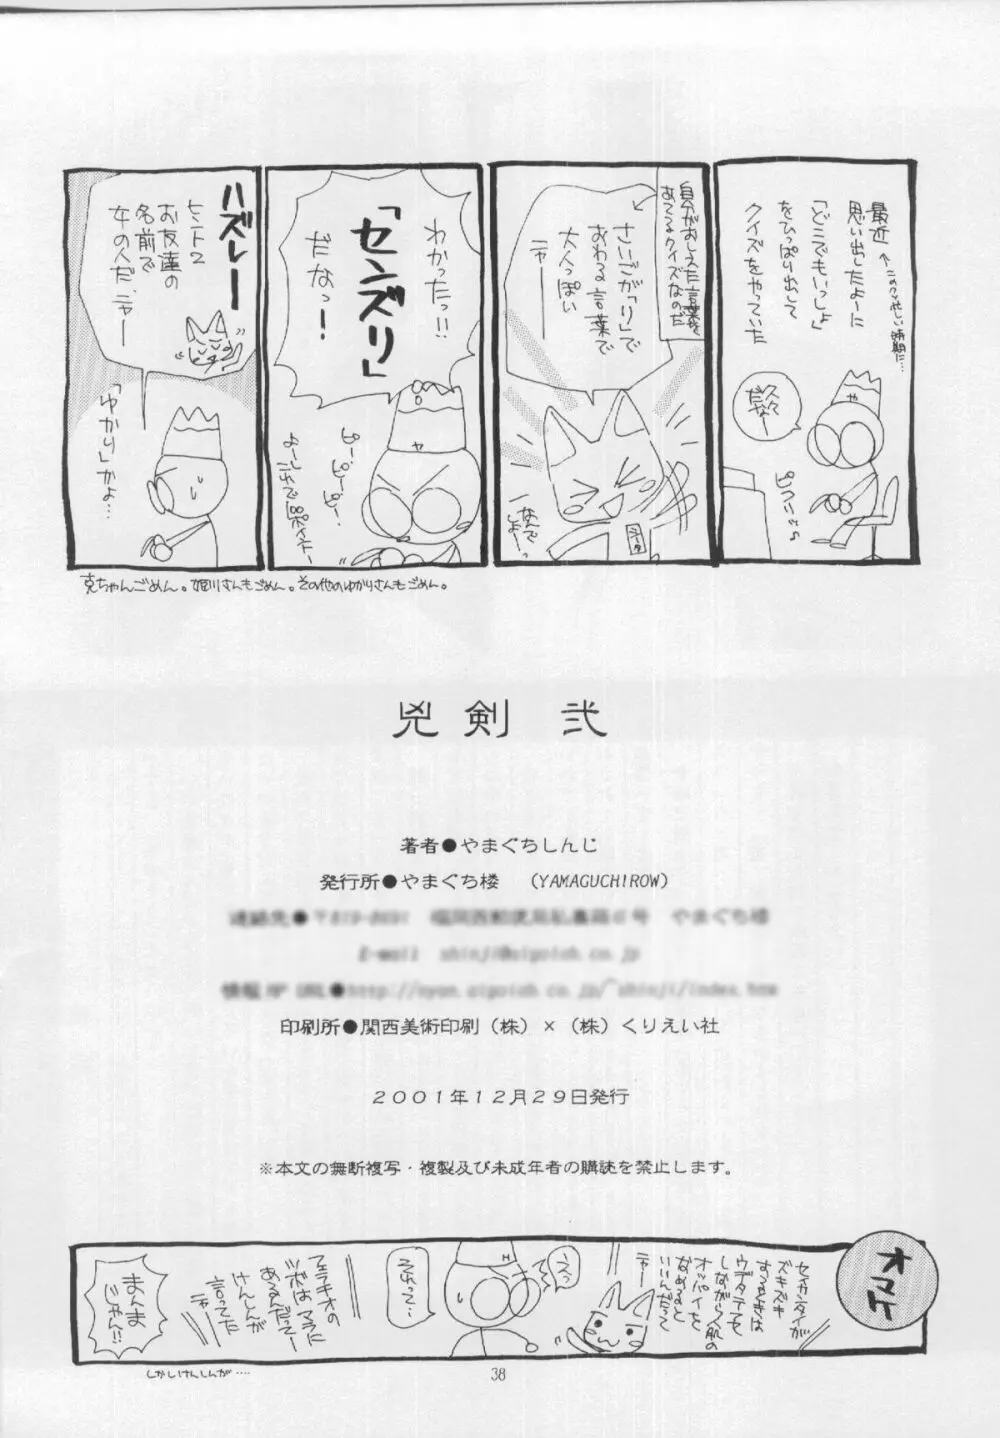 最近
思い出したよーに
「どこでもいっしょ」
をひっぱり出して
クイズをやっていた
↑このクソ忙しい時期に…
久々
だなー
や
ピッ
自分がおしえた言葉を
あてるクイズなのだ
さいごが「り」で
おわる言葉で
大人っぽい
ニャー
なんで
しょー
わかったっ!!
「センズリ」
だなっ!
や
ピーピーピー…
ハズレー
ヒント2
お友達の
名前で
女の人だニャー
「ゆかり」かよ…
克ちゃんごめん。姫川さんもごめん。その他のゆかりさんもごめん。
兇剣 弐
著者●やまぐちしんじ
発行所●やまぐち楼 (YAMAGUCHIROW)
印刷所●関西美術印刷（株）×（株）くりえい社
2001年12月29日発行
※本文の無断複写・複製及び未成年者の購読を禁止します。
オマケ
セイカンタイが
ズキズキ
するときは
ウデタテ
しながら人肌の
オッパイを
なめると
いいんだって
ニャー
えっ
それって…
フェラチオの
ツボは
あるんだってー
けんしんが
言ってた
ニャー
まんま
じゃん!!
しかしけんしんが…
38